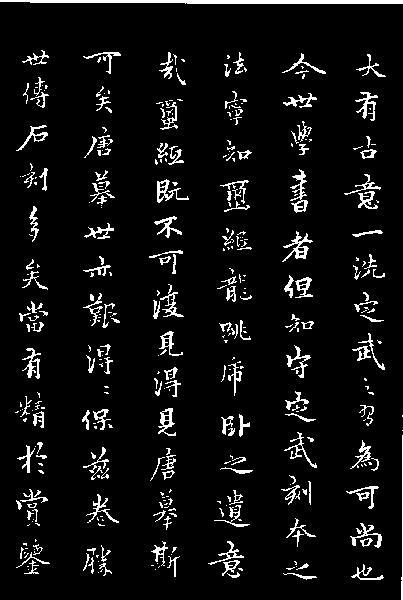 大有古意一洗定武之習為可尚也
今世學書者但知守定武刻本之
法寧知璽紙龍跳虎卧之遺意
哉璽紙既不可復見得見唐摹斯
可矣唐摹世亦艱得得保茲卷勝
世傳石刻多矣當有精於賞鑒